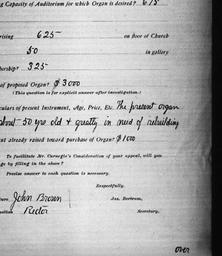 g Capacity of Auditorium for which Organ is desired? 675
rising 625 on floor of Church
50 in gallery
bership? 325
of proposed Organ? $3000
(This question is for explicit answer after investigation.)
culars of present Instrument, Age, Price, Etc. The present organ
about 50 yrs old & greatly in need of rebuilding
nt already raised toward purchase of Organ? $1000
To facilitate Mr. Carnegie's Consideration of your appeal, will you
ge by filling in the above?
Precise answer to each question is necessary.
Respectfully,
John Brown Jas. Bertram,
Rector Secretary.
over